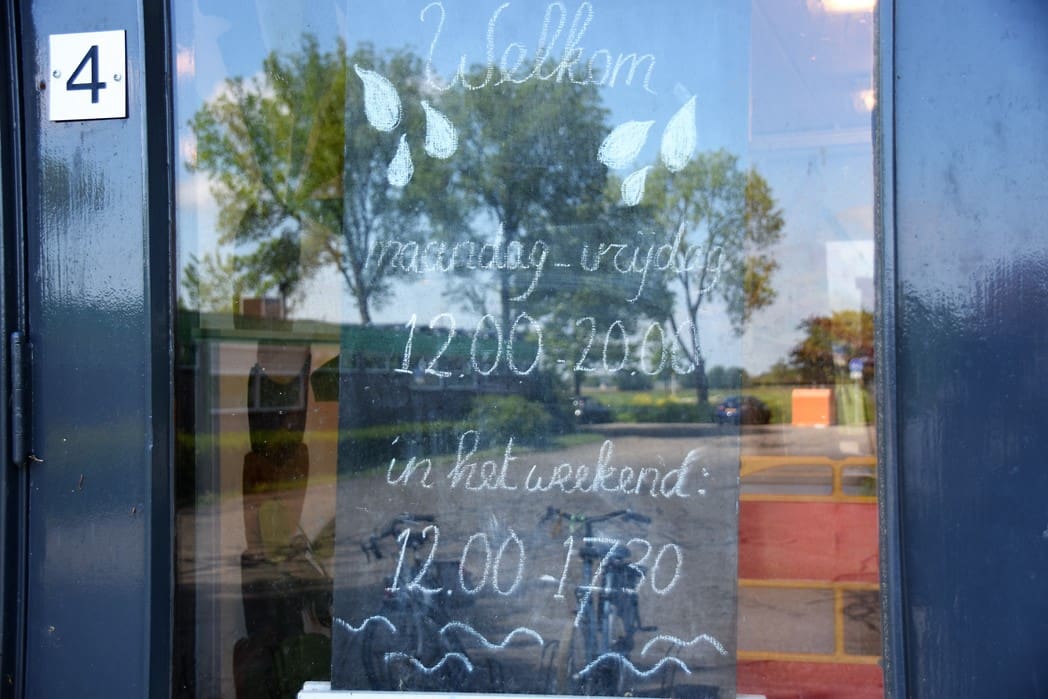 4
Welkom
maandag - vrijdag
12.00 - 20.00
in het weekend:
12.00 - 17.30